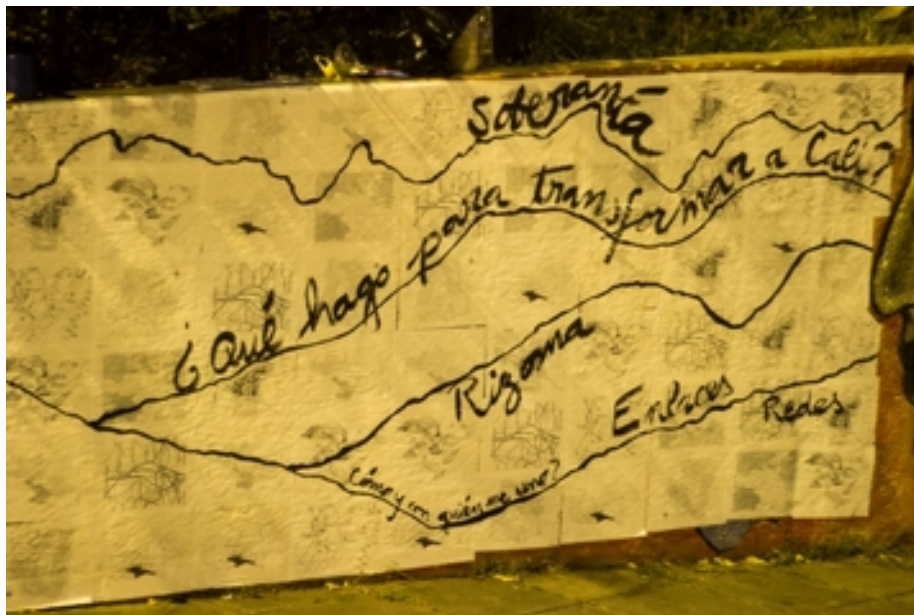 Soberanía
¿Qué hago para transformar a Cali?
Rizoma
Enlaces
Redes
¿Cómo y con quién me uno?